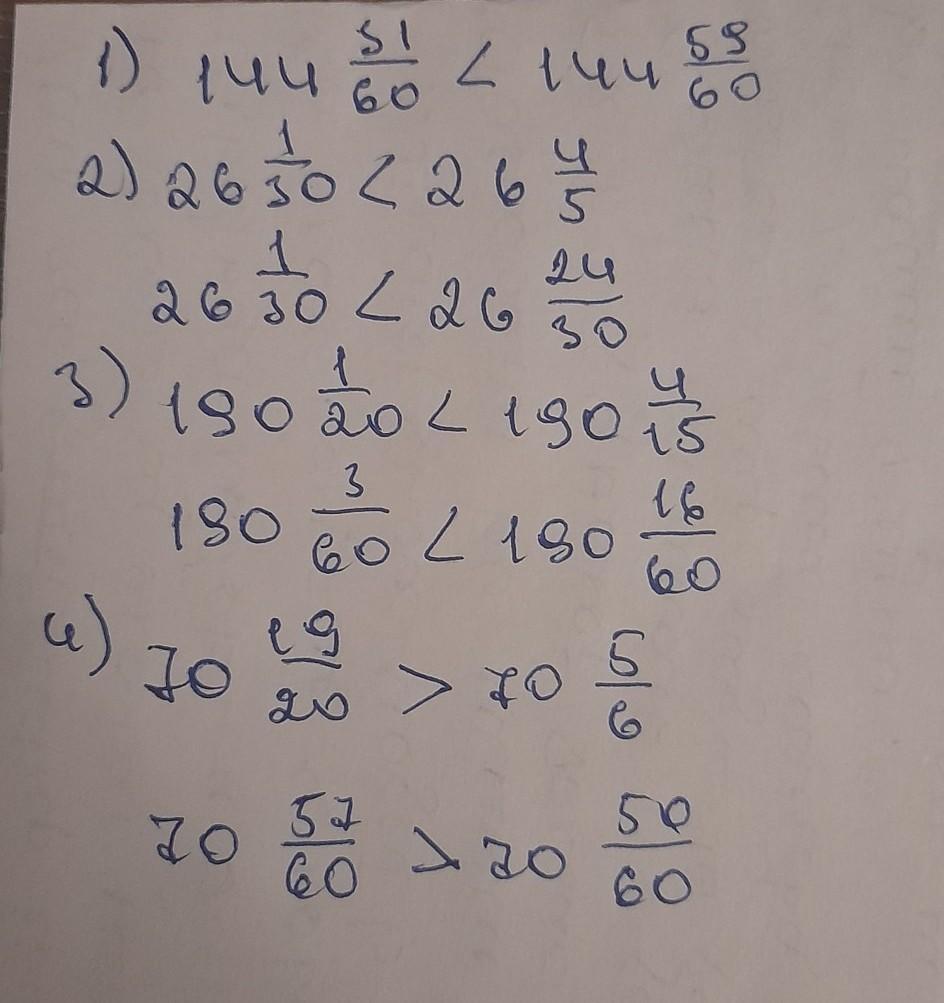 1) 144 51/60 < 144 59/60
2) 26 1/30 < 26 4/5
26 1/30 < 26 24/30
3) 190 1/20 < 190 4/15
190 3/60 < 190 16/60
4) 70 19/20 > 70 5/6
70 57/60 > 70 50/60